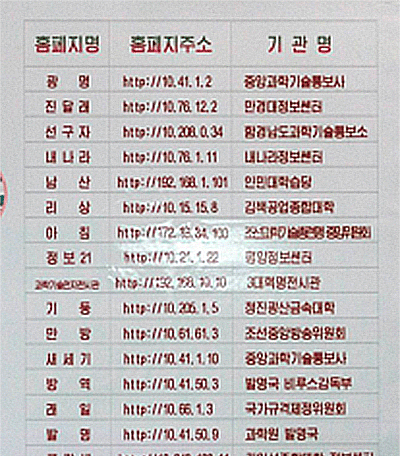 홈페지명 홈페지주소 기관명
광명 http://10.41.1.2 중앙과학기술통보사
진달래 http://10.76.12.2 만경대정보쎈터
선구자 http://10.208.0.34 함경남도과학기술통보소
내나라 http://10.76.1.11 내나라정보쎈터
남산 http://192.168.1.101 인민대학습당
리상 http://10.15.15.8 김책공업종합대학
아침 http://172.16.34.100
정보21 http://10.21.1.22 평양정보쎈터
http://192.168.10.10 3대혁명전시관
기둥 http://10.205.1.5 청진광산금속대학
만방 http://10.61.61.3 조선중앙방송위원회
새세기 http://10.41.1.10 중앙과학기술통보사
방역 http://10.41.50.3 발명국 비루스감독부
래일 http://10.66.1.3 국가규격제정위원회
발명 http://10.41.50.9 과학원 발명국